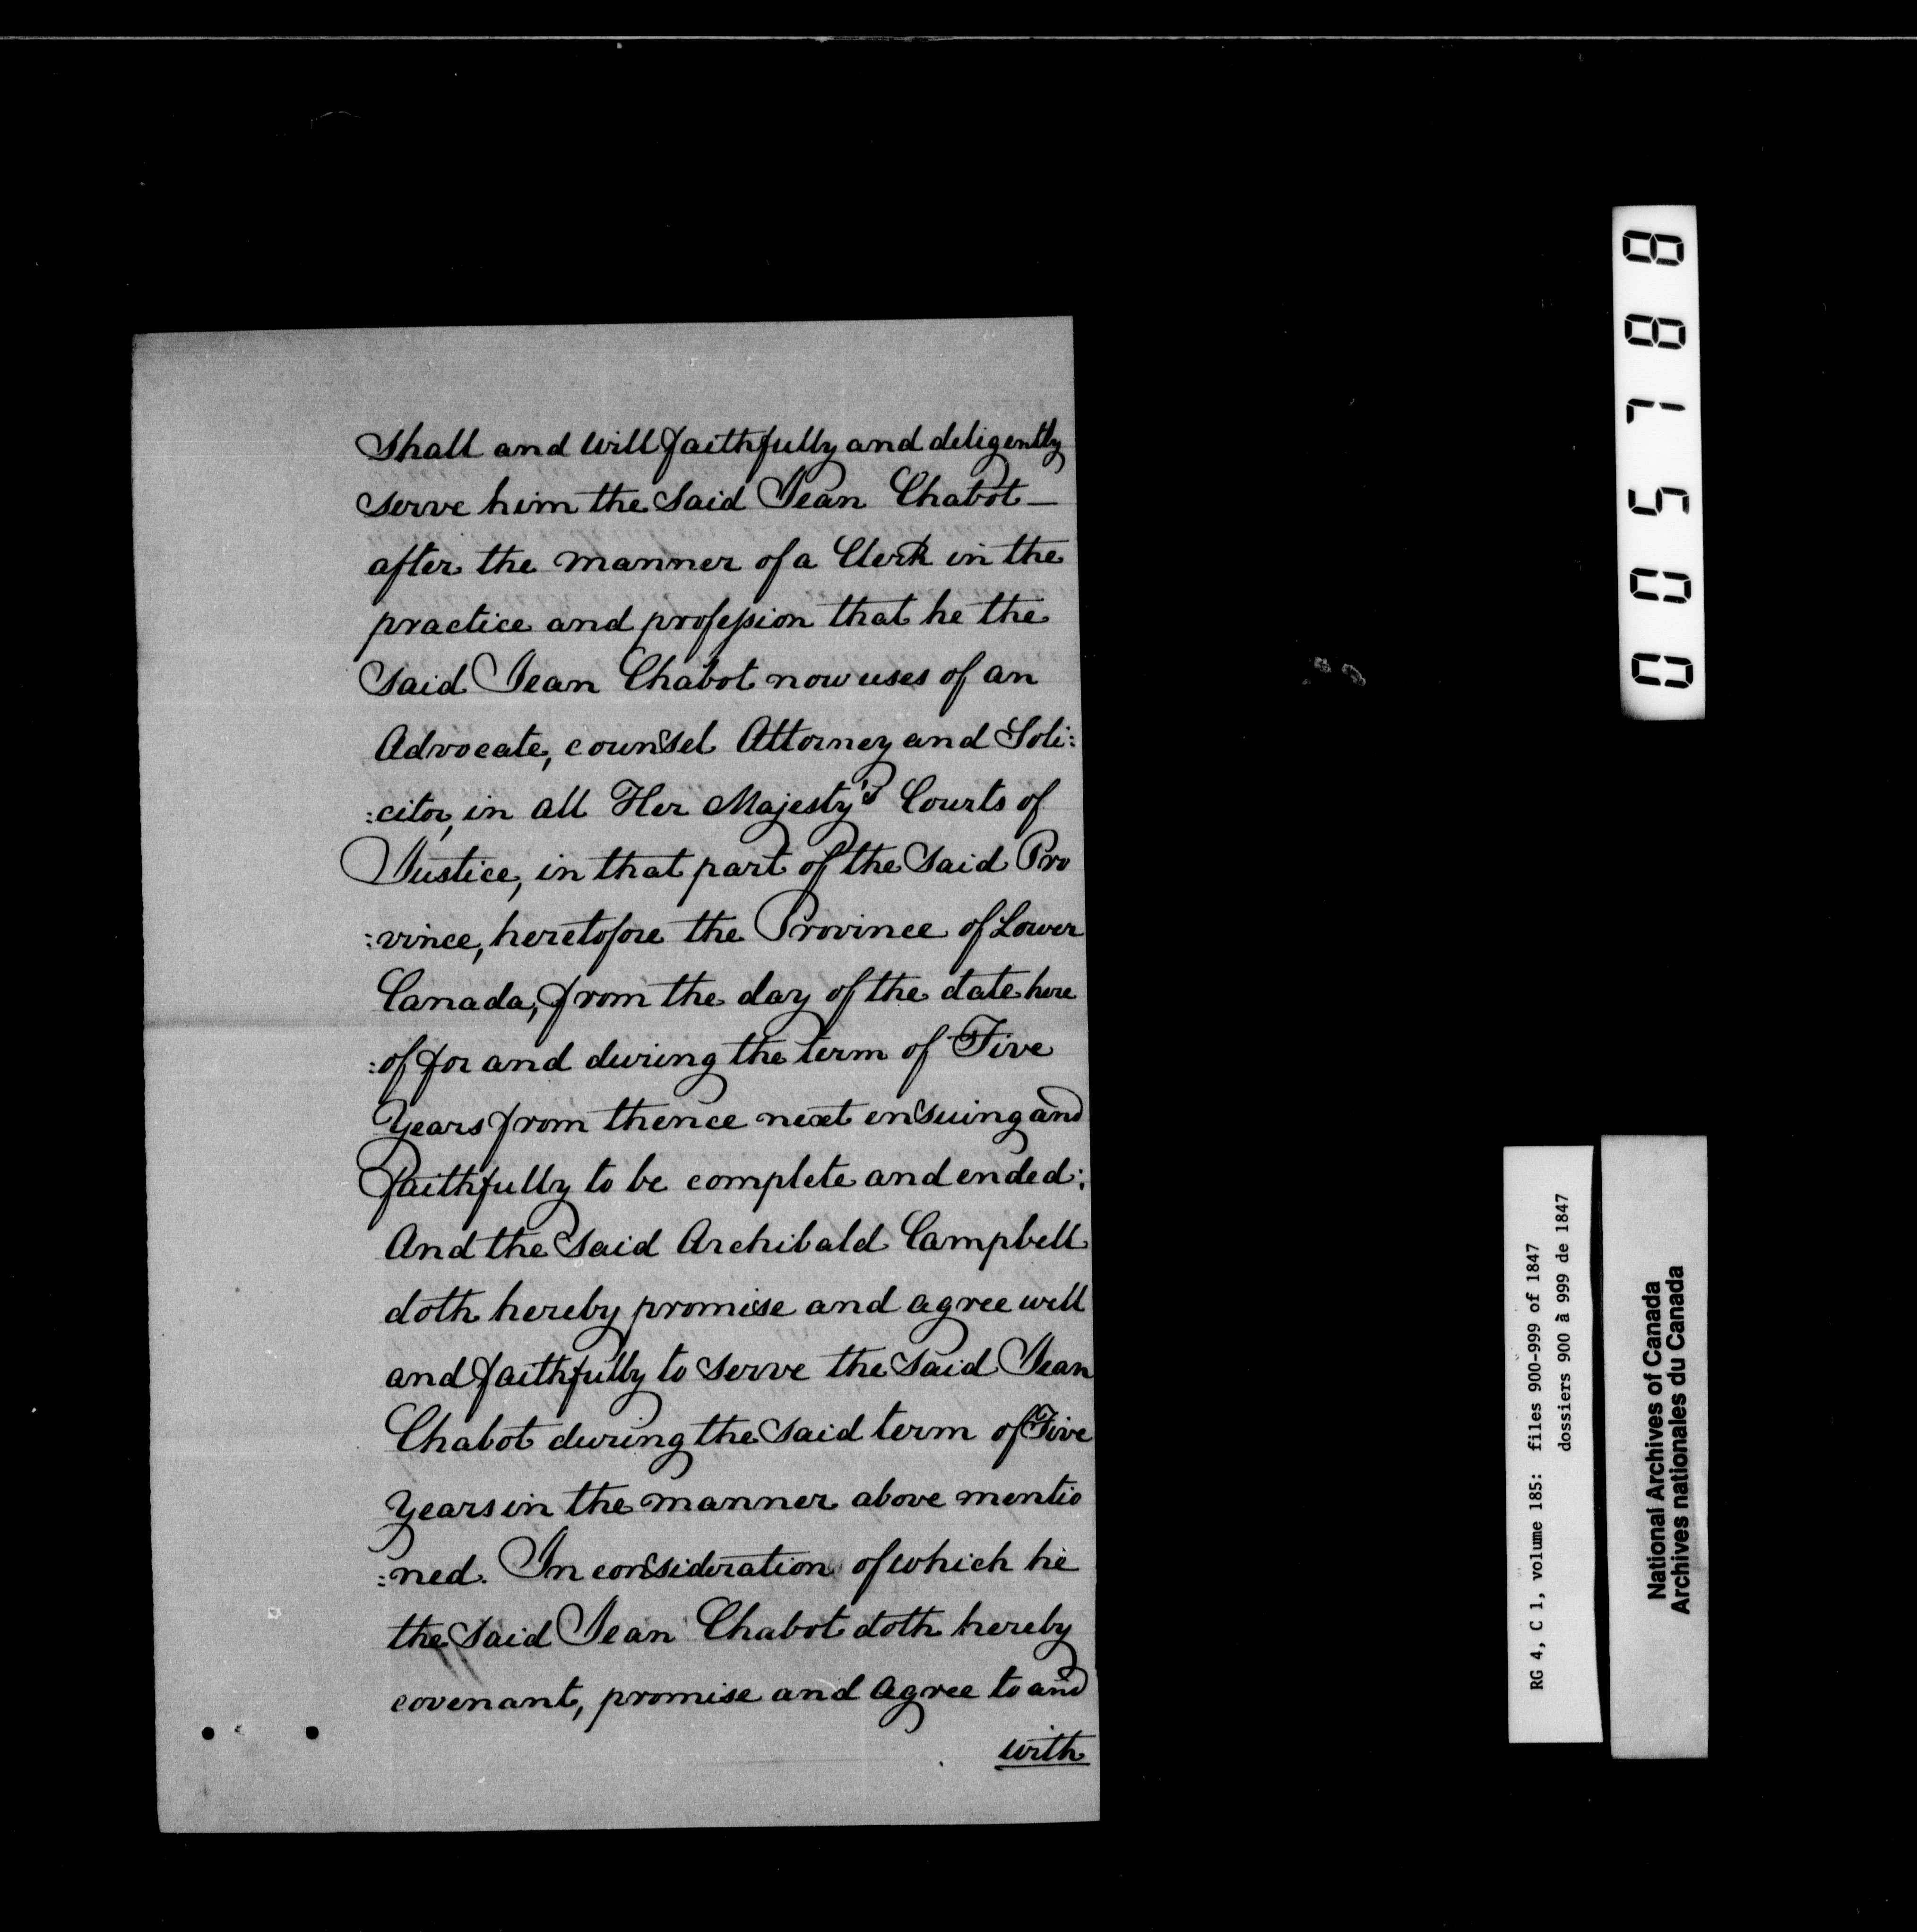 shall and will faithfully and deligently
serve him the said Jean Chabot—
after the manner of a Clerk in the
practice and profession that he the
said Jean Chabot now uses of an
Advocate, counsel Attorney and Soli:
:citor, in all Her Majesty's Courts of
Justice, in that part of the said Pro
:vince, heretofore the Province of Lower
Canada, from the day of the date here
:of for and during the term of Five
Years from thence next ensuing and
faithfully to be complete and ended:
And the said Archibald Campbell
doth hereby promise and agree well
and faithfully to serve the said Jean
Chabot during the said term of Five
Years in the manner above mentio
:ned. In consideration of which he
the said Jean Chabot doth hereby
covenant, promise and agree to and
with
005788
RG 4, C 1, volume 185: files 900-999 of 1847
dossiers 900 à 999 de 1847
National Archives of Canada
Archives nationales du Canada